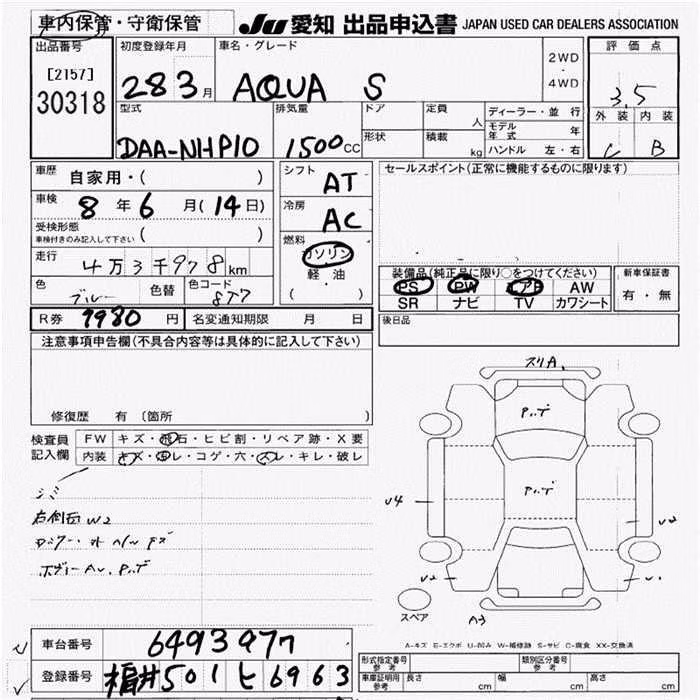 車内保管・守衛保管
JU 愛知 出品申込書 JAPAN USED CAR DEALERS ASSOCIATION
出品番号
[2157]
30318
初度登録年月
28 3月
車名・グレード
AQUA S
2WD
・
4WD
評価点
3.5
外装 内装
C B
型式
DAA-NHP10
排気量
1500cc
ドア
形状
定員 人
積載 kg
ディーラー・並行
モデル年式 年
ハンドル 左・右
車歴 自家用・( )
車検 8年6月(14日)
受検形態
車検付きのみ記入して下さい ( )
走行 4万3千978km
色 ブルー 色替 色コード 8T7
シフト AT
冷房 AC
燃料
ガソリン
軽・油
( )
セールスポイント(正常に機能するものに限ります)
装備品(純正品に限り○をつけてください)
PS PW エアB AW
SR ナビ TV カワシート
新車保証書
有・無
R券 9980円 名変通知期限 月 日
後日品
注意事項申告欄(不具合内容等は具体的に記入して下さい)
修復歴 有 〔箇所
検査員記入欄
FW キズ・飛石・ヒビ割・リペア跡・X要
内装 キズ・汚レ・コゲ・穴・スレ・キレ・破レ
シミ
右側面 W2
ボディー
スリA
U4
U2
A3
スペア
A-キズ E-エクボ U-凹み W-補修跡 S-サビ C-腐食 XX-交換済
車台番号 6493977
登録番号 福井501ヒ6963
形式指定番号 参考
類別区分番号 参考
車庫証明用 参考 長さ cm 幅 cm 高さ cm